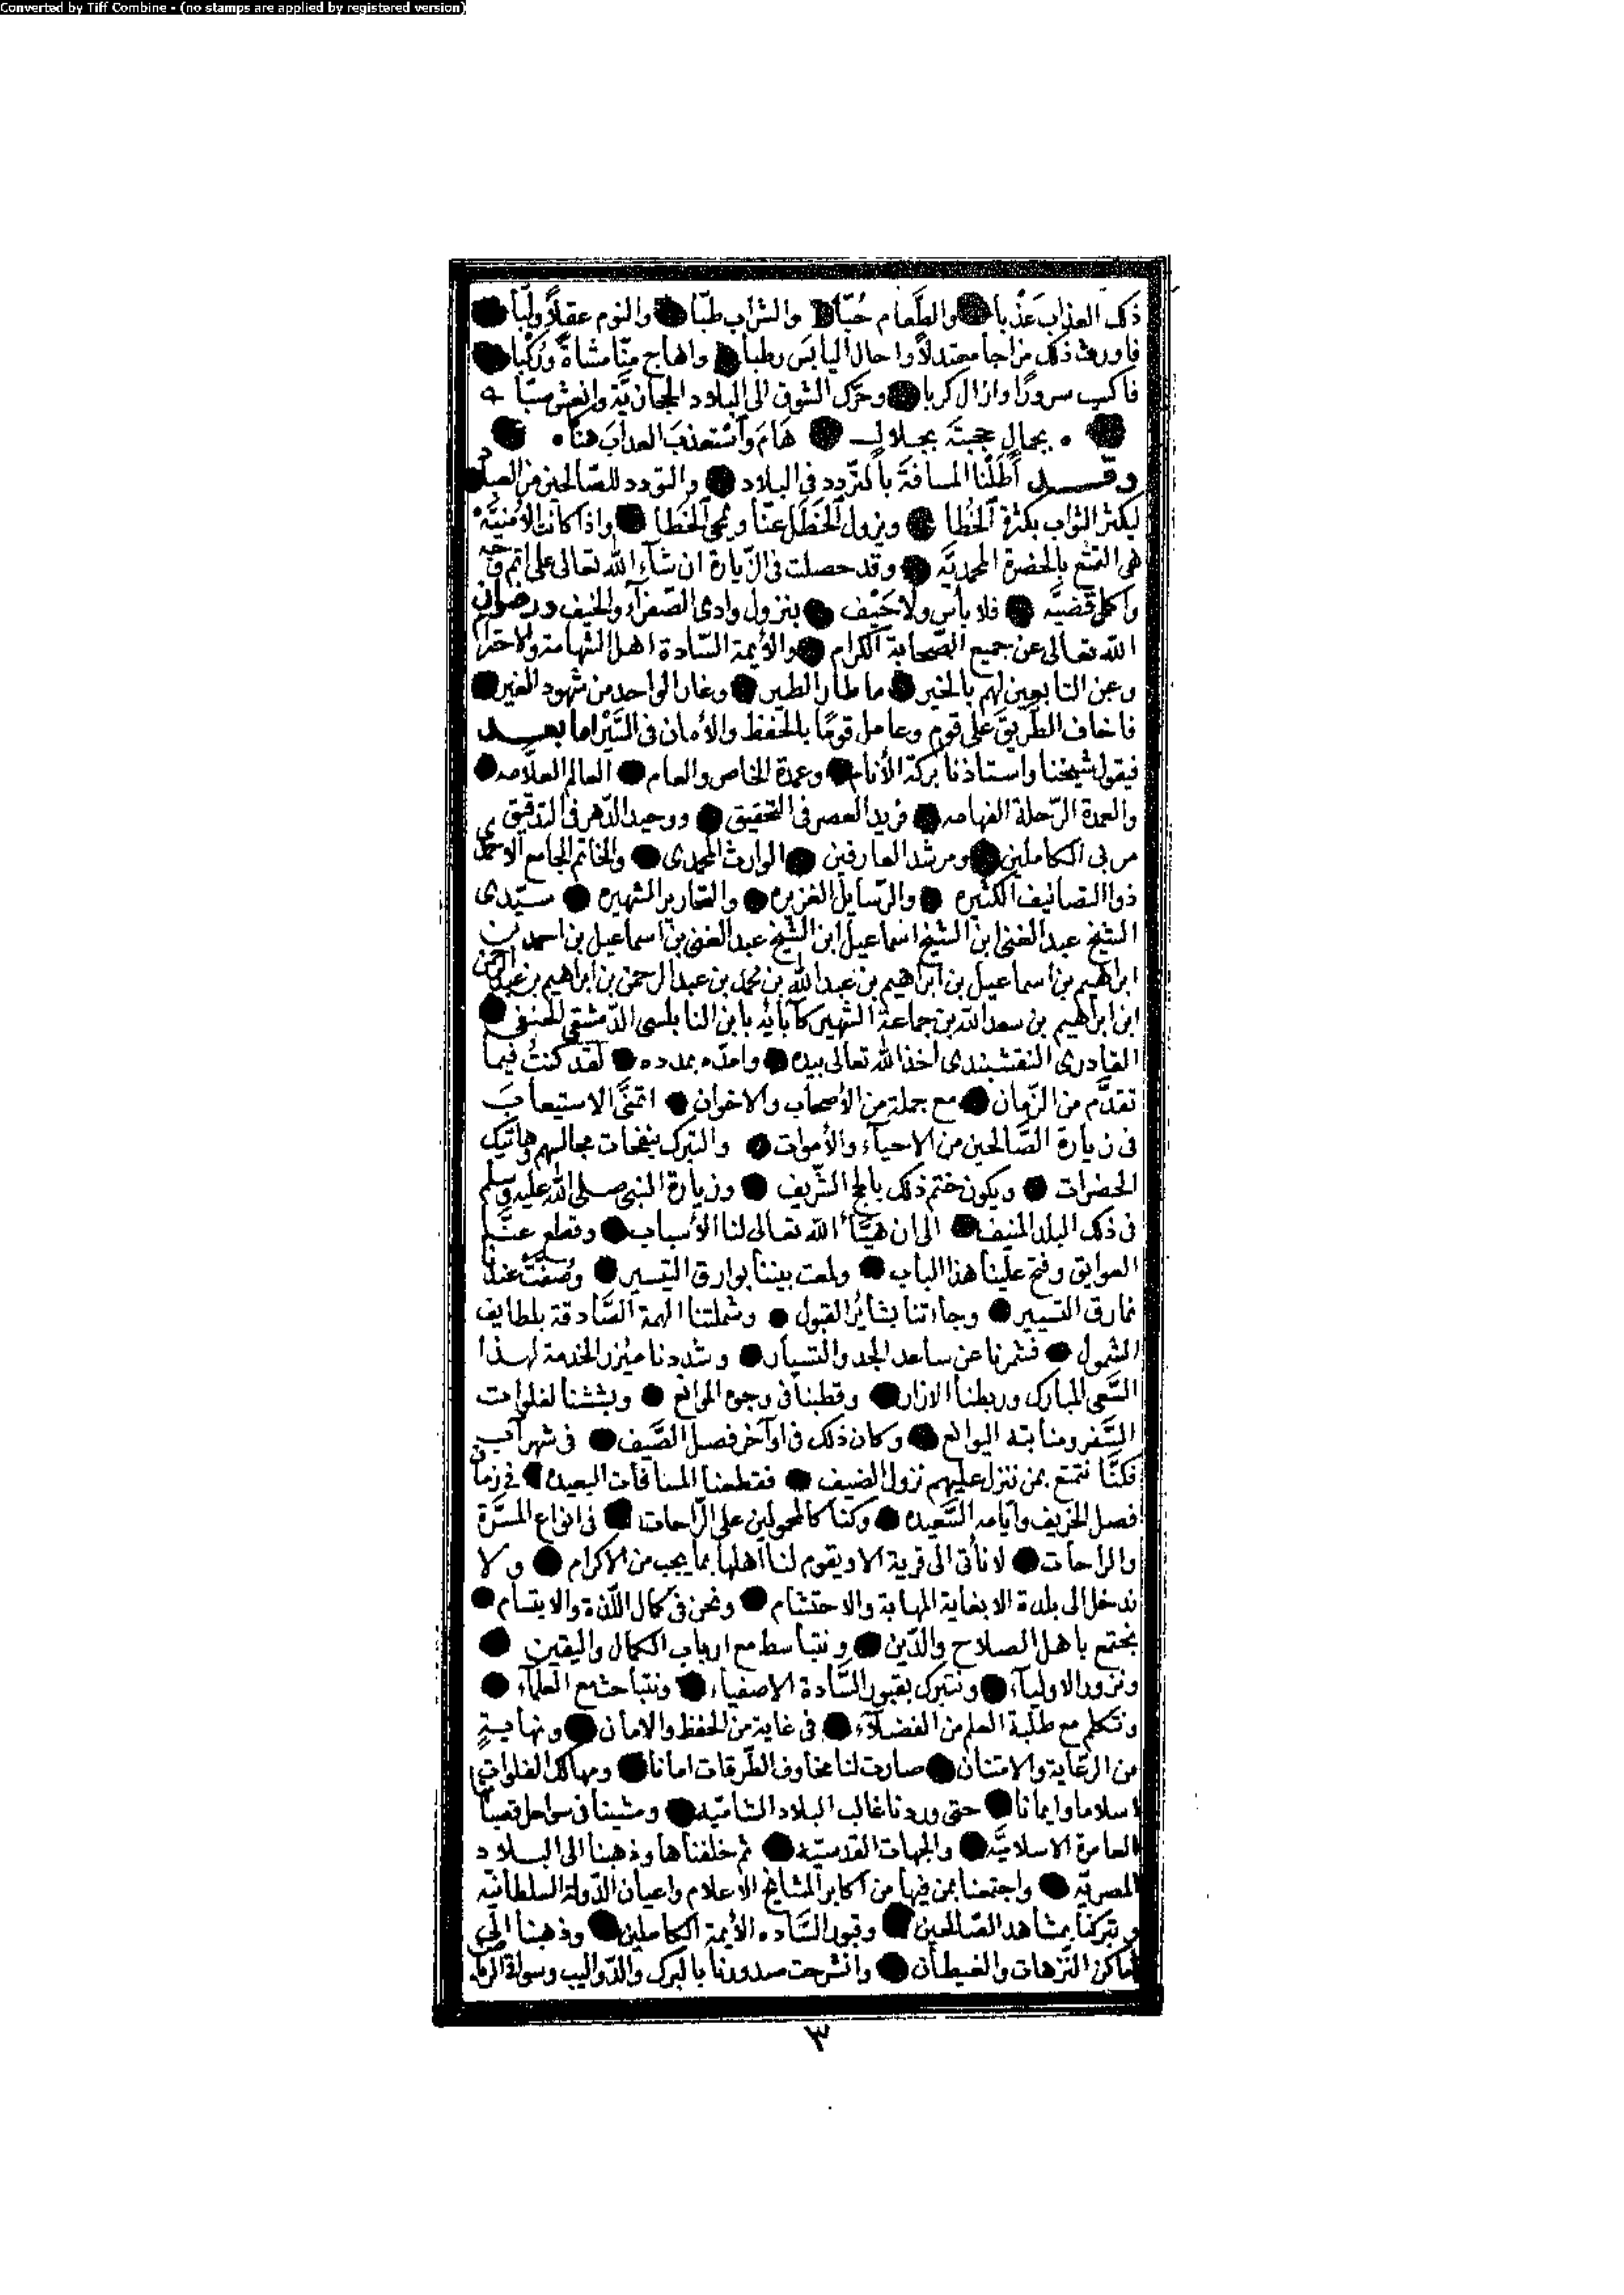 Converted by Tiff Combine - (no stamps are applied by registered version)
ذلك العذاب عَذْبا والطَّعام حُبّا والشراب طبّا والنوم عقلاً ولُبّا
فاورث ذلك مزاجا معتدلاً واحال اليابس رطبا واهاج منّا مشاةً ورُكْبا
فاكسب سرورًا وازال كربا وحرَّك الشوق الى البلاد الحجازيَّة وانعش صبّا
بجمال حجبتَه بجلال هَامَ واسْتعذبَ العذابَ هنا
وقد أطَلْنا المسافة بالتردد فى البلاد والتودد للصّالحين من العباد
ليكثر الثواب بكثرة الخُطا ويزول الخَطَل عنّا ويمحى الخَطا واذا كانت الأمنيَّة
هى التمتّع بالحضرة المحمديَّه وقد حصلت فى الزّيارة ان شآء الله تعالى على اتم وجه
واكمل قضيَّه فلا بأس ولا حَيْف بنزول وادى الصّفرآء والخيف ورضوان
الله تعالى عن جميع الصّحابة الكرام والأئمة السّادة اهل الشهامة والاحترام
وعن التابعين لهم بالخير ما طار الطير وغار الواحد من شهود الغير
فاخاف الطّريقَ على قوم وعامل قومًا بالحفظ والأمان فى السَّيْر اما بعد
فيقول شيخنا واستاذنا بركة الأنام وعمدة الخاص والعام العالم العلاّمه
والعمدة الرّحلة الفهامه فريد العصر فى التحقيق ووحيد الدّهر فى التدقيق
مربى الكاملين ومرشد العارفين الوارث المحمدى والخاتم الجامع الاحمدى
ذو التصانيف الكثيره والرّسايل الغزيره والتحارير الشهيره سيّدى
الشيخ عبد الغنى ابن الشيخ اسماعيل ابن الشّيخ عبد الغنى بن اسماعيل بن احمد بن
ابراهيم بن اسماعيل بن ابراهيم بن عبد الله بن محمد بن عبد الرحمن بن ابراهيم بن عبد الرحمن
ابن ابراهيم بن سعد الله بن جماعة الشهير كآبائه بابن النابلسى الدّمشقى الحنفى
القادرى النقشبندى اخذ الله تعالى بيده وامدّه بمدده لقد كنتُ فيما
تقدَّم من الزّمان مع جملة من الأصحاب والاخوان اتمنَّى الاستيعابَ
فى زيارة الصَّالحين من الاحيآء والأموات والتبرك بنفحات مجالسهم وهاتيك
الحضرات ويكون ختم ذلك بالحج الشّريف وزيارة النبى صلى الله عليه وسلم
فى ذلك البلد المنيف الى ان هيّأ الله تعالى لنا الأسباب وقطع عنّا
العوايق وفتح علينا هذا الباب ولمعت بيننا بوارق التيسير وصُفّت عندنا
نمارق التسيير وجاءتنا بشائر القبول وشملتنا الهمة الصَّادقة بلطايف
الشمول فشمرنا عن ساعد الجد والتسيار وشددنا ميزر الخدمة لهذا
السَّعى المبارك وربطنا الازار وقطبنا فى وجوه الموانع وبششنا لفلوات
السَّفر ومنابته اليوانع وكان ذلك فى اوآخر فصل الصَّيف فى شهر آب
فكنَّا نتمتع بمن ننزل عليهم نزول الضيف فقطعنا المسافات البعيده فى زمان
فصل الخريف وايّامه السَّعيده وكنا كالمحمولين على الرَّاحات فى انواع المسرَّة
والراحات لا نأتى الى قرية الا ويقوم لنا اهلها بما يجب من الاكرام ولا
ندخل الى بلدة الا بغاية المهابة والاحتشام ونحن فى كمال اللذة والابتسام
نجتمع باهل الصلاح والدّين ونتباسط مع ارباب الكمال واليقين
ونزور الاوليآء ونتبرك بقبور السَّادة الاصفياء ونتباحث مع العلمآء
ونتكلم مع طلبة العلم من الفضلآء فى غاية من الحفظ والامان ونهايةٍ
من الرعّاية والامتنان صارت لنا مخاوف الطّرقات امانا ومهالك الفلوات
اسلاما وايمانا حتى وردنا غالب البلاد الشاميّه ومشينا فى سواحل
العامرة الاسلاميَّه والجهات القدسيّه ثم خلفناها وذهبنا الى البلاد
المصريّه واجتمعنا بمن فيها من اكابر المشايخ الأعلام واعيان الدّولة السلطانيّه
وتبركنا بمشاهد الصّالحين وقبور السَّاده الأيمة الكاملين وذهبنا الى
اماكن النّزهات والغيطان وانشرحت صدورنا بالبرك والدّواليب
٣